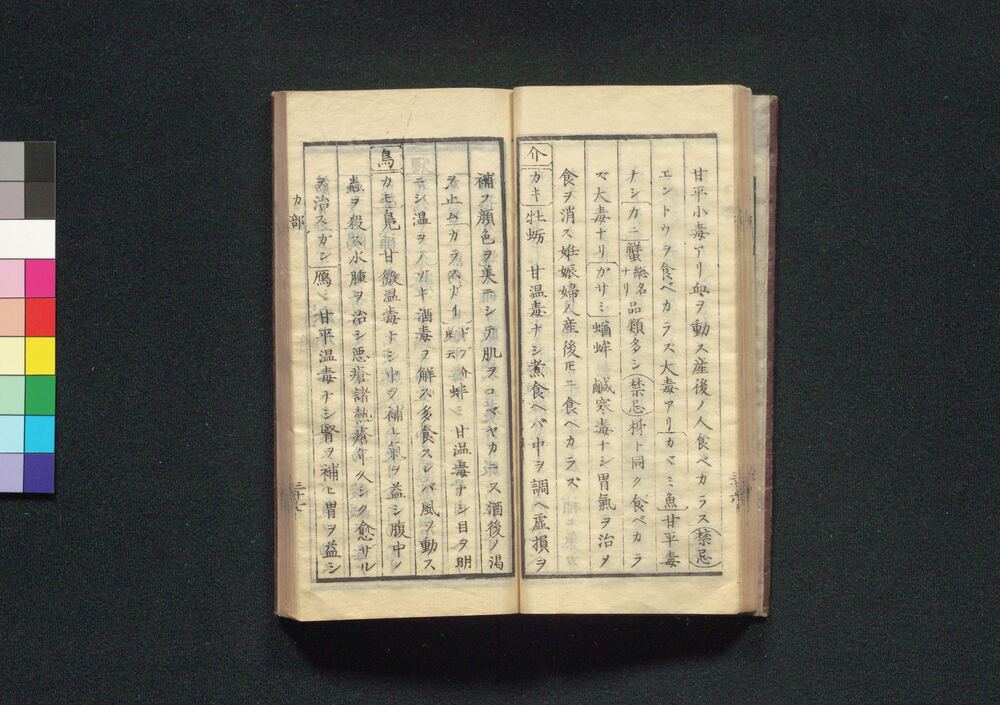 甘平小毒アリ血ヲ動ス産後ノ人食ベカラス禁忌
エントウヲ食ベカラズ大毒アリカマミ魚甘平毒
ナシカニ蟹総名ナリ品類多シ禁忌柹ト同ク食ベカラ
ズ大毒ナリガサミ蝤蛑鹹寒毒ナシ胃氣ヲ治メ
食ヲ消ス妊娠婦人産後ニ食ベカラズ
介カキ牡蛎甘温毒ナシ煮食ヘバ中ヲ調ヘ虚損ヲ
補フ顔色ヲ美ニシテ肌ヲコマヤカニス酒後ノ渇
ヲ止ムカラスガイドブ介蚌甘温毒ナシ目ヲ明
ニシ温ヲノゾキ酒毒ヲ解ス多食スレバ風ヲ動ス
鳥カモ鳬甘微温毒ナシ中ヲ補ヒ氣ヲ益シ腹中ノ
蟲ヲ殺ス水腫ヲ治シ悪瘡諸熱瘡年久シク愈サル
ヲ治スガン鴈甘平温毒ナシ腎ヲ補ヒ胃ヲ益シ
カ部
三十七